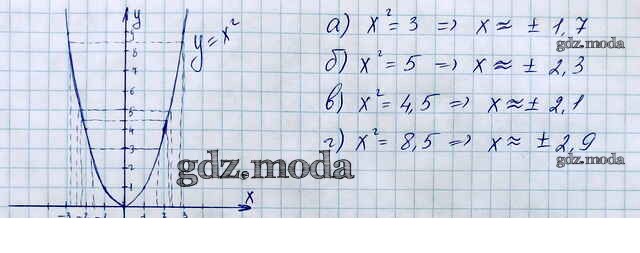 y
y = x²
9
8
7
6
5
4
3
2
1
-3 -2 -1 1 2 3 x
а) x² = 3 => x ≈ ± 1,7
gdz.moda
б) x² = 5 => x ≈ ± 2,3
в) x² = 4,5 => x ≈ ± 2,1
г) x² = 8,5 => x ≈ ± 2,9
gdz.moda
gdz.moda